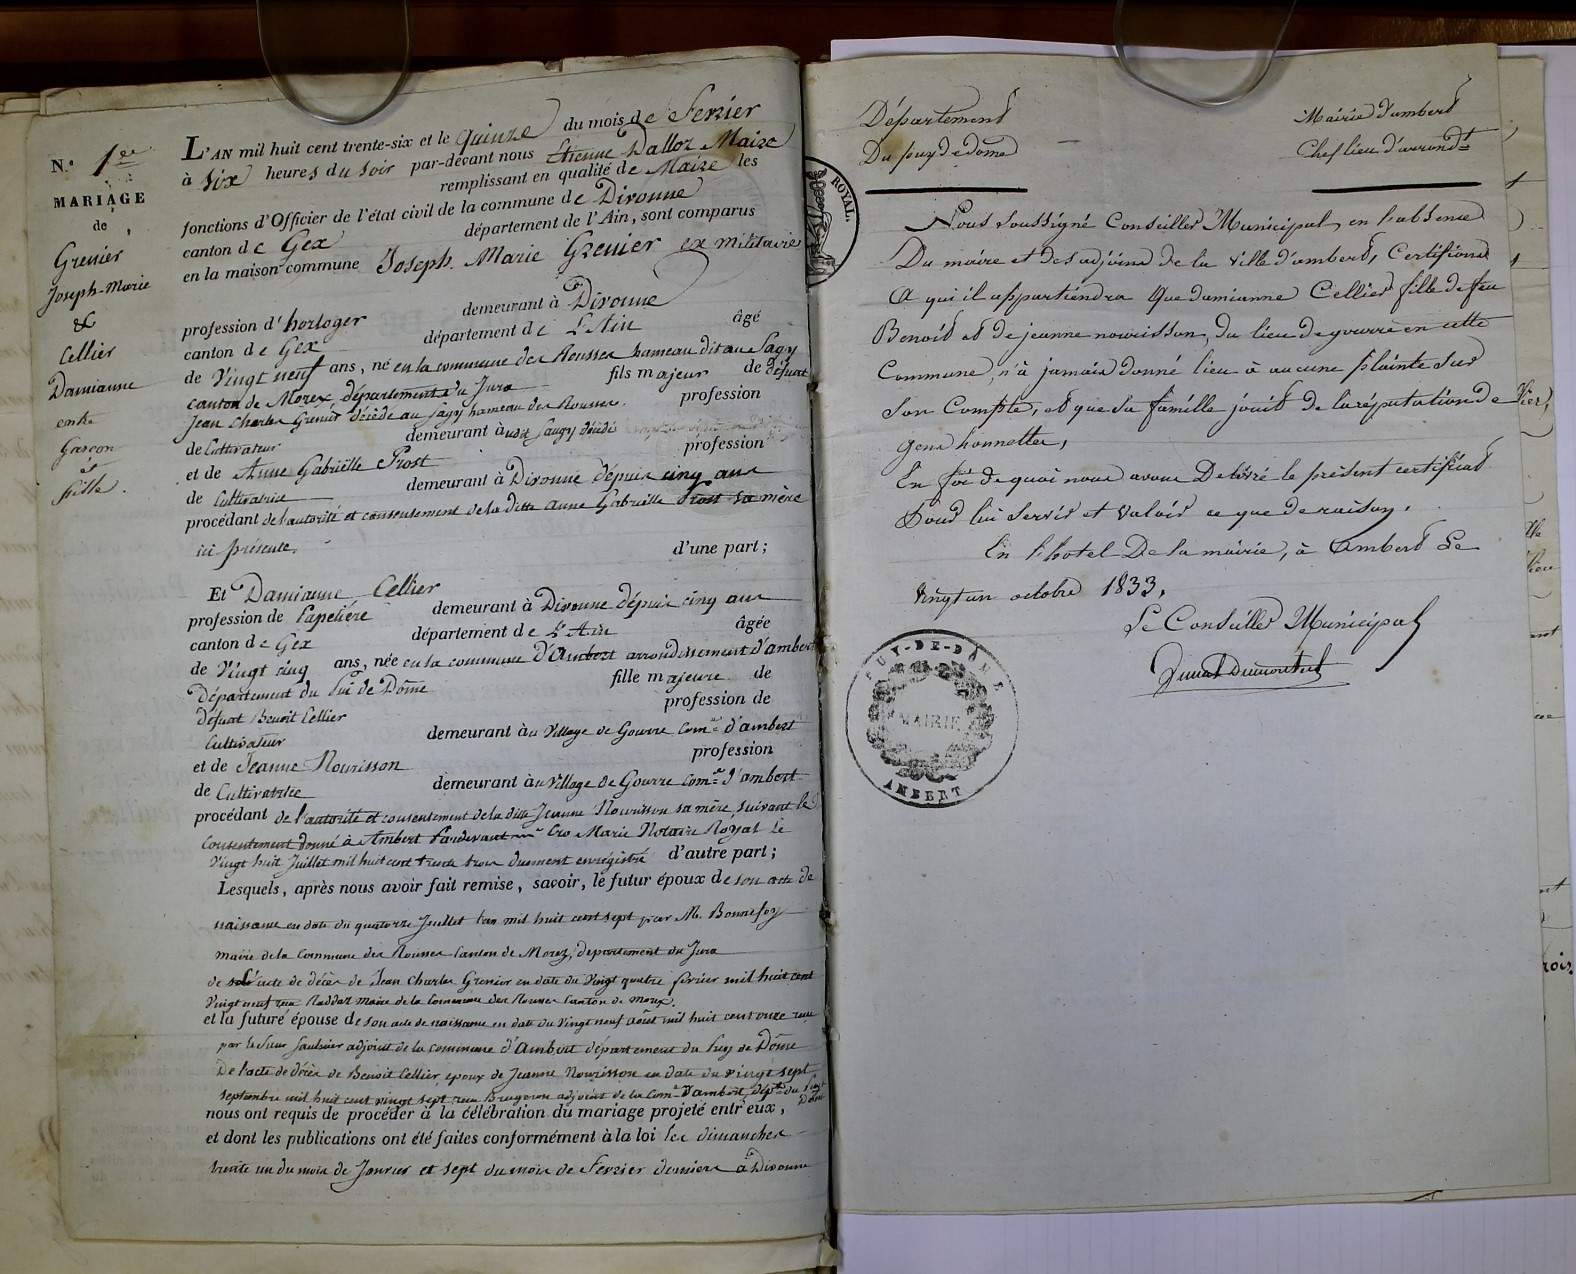 N.º 1er
MARIAGE
de
Grenier
Joseph-Marie
&
Cellier
Damianne
entre
Garçon
et
fille.
L'AN mil huit cent trente-six et le quinze du mois de Fevrier
à six heures du soir par-devant nous Etienne Dalloz Maire
remplissant en qualité de Maire les
fonctions d'Officier de l'état civil de la commune de Divonne
canton de Gex département de l'Ain, sont comparus
en la maison commune Joseph Marie Grenier ex militaire
profession d'horloger demeurant à Divonne
canton de Gex département de L'Ain âgé
de Vingt neuf ans, né en la commune des Rousses hameau dit au Sagy
canton de Morez, département du Jura fils majeur de défunt
Jean Charles Grenier décédé au Sagy hameau des Rousses. profession
de Cultivateur demeurant audit Saugy décédé
et de Anne Gabriëlle Prost profession
de Cultivatrice demeurant à Divonne dépuis cinq ans
procédant de l'autorité et consentement de la ditte Anne Gabrielle Prost sa mère
ici présente. d'une part;
Et Damianne Cellier
profession de Papetière demeurant à Divonne dépuis cinq ans
canton de Gex département de L'Ain âgée
de Vingt cinq ans, née en la commune d'Ambert arrondissement d'ambert
Département du Pui de Dôme fille majeure de
défunt Benoit Cellier profession de
Cultivateur demeurant au Village de Gourre Com.e d'ambert
et de Jeanne Nourisson profession
de Cultivatrice demeurant au Village de Gourre Com.e d'ambert
procédant de l'autorité et consentement de la ditte Jeanne Nourisson sa mère, suivant le
Consentement donné à Ambert Pardevant Me Cro Marie Notaire Royal le
Vingt huit Juillet mil huit cent trente trois duement enrégistré d'autre part;
Lesquels, après nous avoir fait remise, savoir, le futur époux de son acte de
naissance en date du quatorze Juillet l'an mil huit cent sept par M. Bonnefoy
maire de la Commune des Rousses Canton de Morez, departement du Jura
de l'acte de décès de Jean Charles Grenier en date du Vingt quatre fevrier mil huit cent
Vingt neuf reçu Raddaz maire de la Commune des Rousses Canton de Morez.
et la future épouse de son acte de naissance en date du Vingt neuf août mil huit cent onze reçu
par le Sieur Saulnier adjoint de la commune d'Ambert département du Puy de Dôme
De l'acte de décès de Benoit Cellier, epoux de Jeanne Nourisson en date du vingt sept
septembre mil huit cent vingt sept reçu Brugeron adjoint de la Com.e d'ambert, dépt du Puy de Dôme
nous ont requis de procéder à la célébration du mariage projeté entr'eux,
et dont les publications ont été faites conformément à la loi les dimanches
trente un du mois de Janvier et sept du mois de Fevrier derniers à Divonne
ROYAL.
Département
Du puy de dome
Mairie d'ambert
Chef lieu d'arrondt
Nous soussigné Conseiller Municipal, en l'absence
Du maire et des adjoins de la ville d'ambert, Certifions
A qui il appartiendra Que damianne Cellier fille de feu
Benoit et de jeanne nourisson, du lieu de gourre en cette
Commune, n'à jamais donné lieu à aucune plainte sur
son Compte, et que sa famille jouit de la réputation de
gens honnettes,
En foi de quoi nous avons Delivré le présent certificat
Pour lui servir et valoir ce que de raison.
En l'hotel De la mairie, à ambert Le
vingt un octobre 1833,
Le Conseiller Municipal
PUY-DE-DÔME
MAIRIE
AMBERT